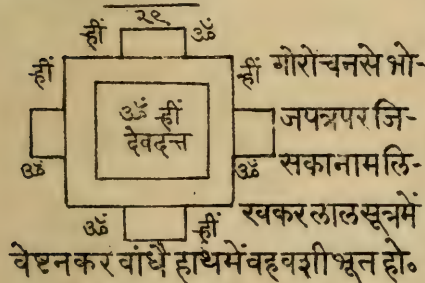 २९
ह्रीं ॐ
ह्रीं ह्रीं
ॐ ह्रीं
देवदत्त
ॐ ॐ
ॐ ह्रीं
गोरोचनसे भो-
जपत्रपर जि-
सका नाम लि-
खकर लाल सूत्रमें
वेष्टनकर बांधै हाथमें वह वशीभूत हो॰